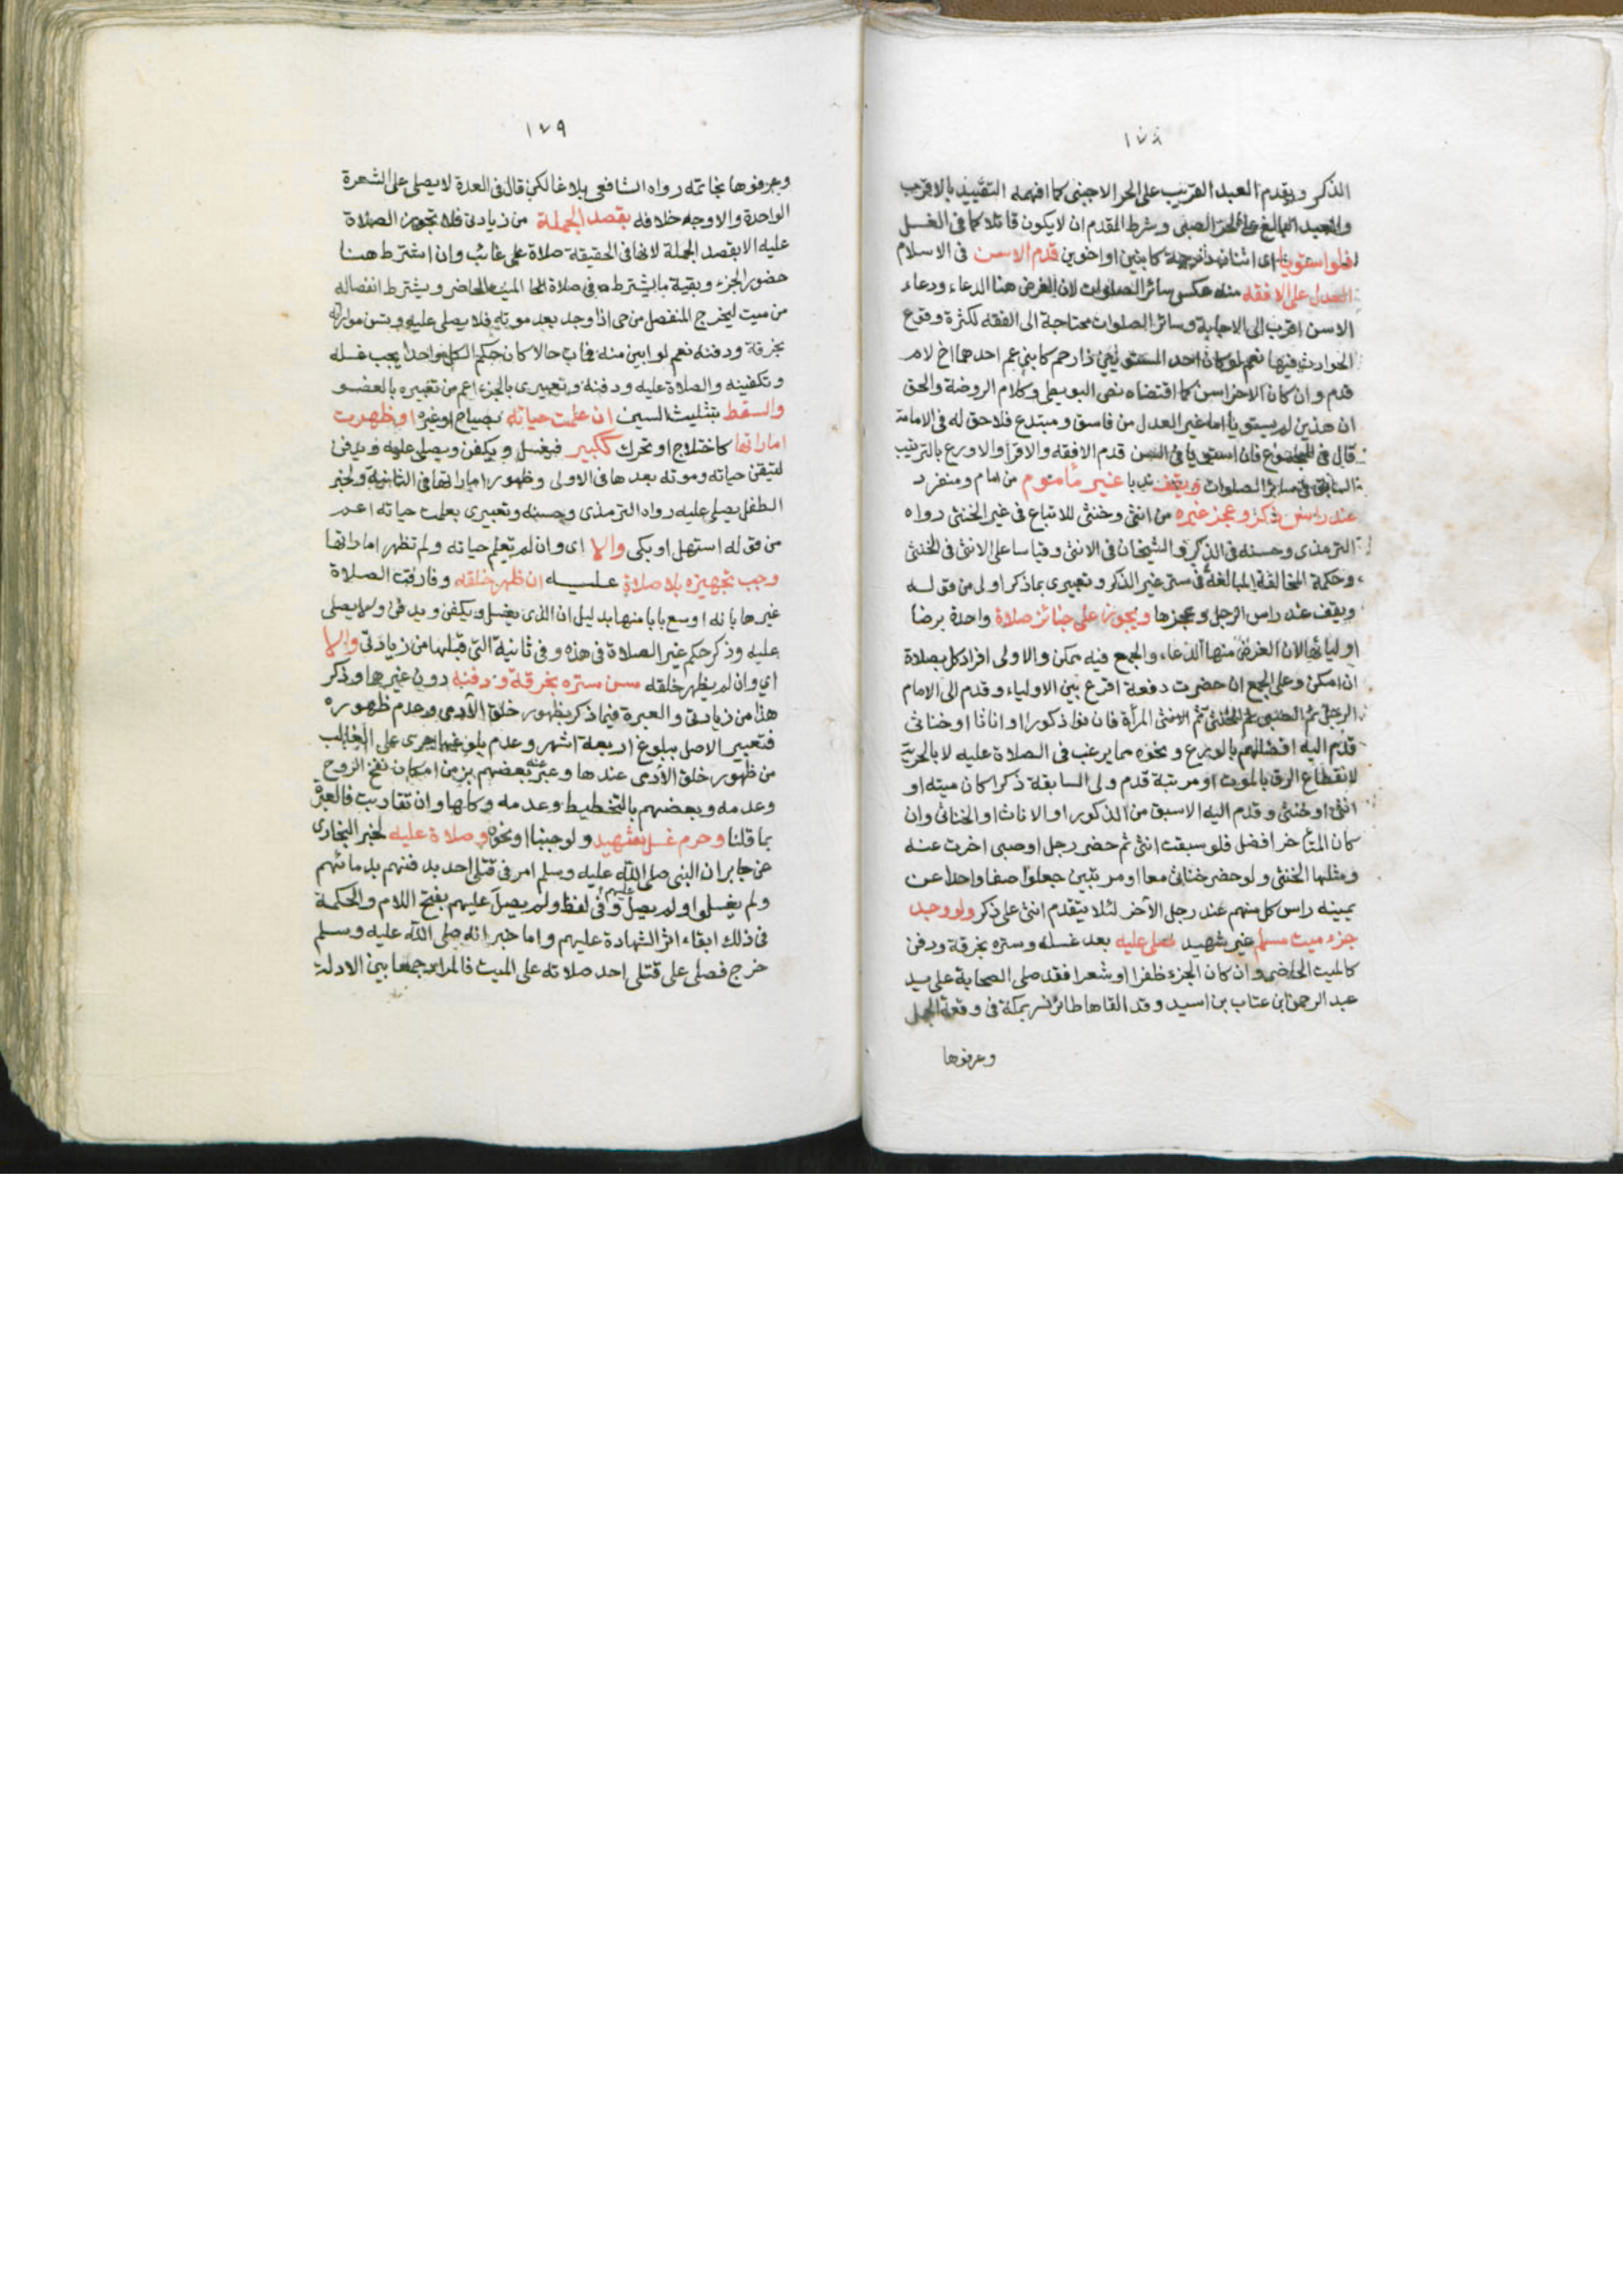 ١٧٨
الذكر ويقدم العبد القريب على الحر الاجنبى كما افهمه التقييد بالاقرب
والعبد البالغ على الحر الصبى وشرط المقدم ان لا يكون قاتلا كما فى الغسل
فلو استويا اى اثنان فى درجة كابنين او اخوين قدم الاسن فى الاسلام
العدل على الافقه منه عكس سائر الصلوات لان الغرض هنا الدعاء ودعاء
الاسن اقرب الى الاجابة وسائر الصلوات محتاجة الى الفقه لكثرة وقوع
الحوادث فيها نعم لو كان احد المستويين ذا رحم كابنى عم احدهما اخ لام
قدم وان كان الاخر اسن كما اقتضاه نص البويطى وكلام الروضة والحق
ان هذين لم يستويا اما غير العدل من فاسق ومبتدع فلا حق له فى الامامة
قال فى المجموع فان استويا فى السن قدم الافقه والاقرأ والاورع بالترتيب
السابق فى سائر الصلوات ويقف ندبا غير مأموم من امام ومنفرد
عند راس ذكر وعجز غيره من انثى وخنثى للاتباع فى غير الخنثى رواه
الترمذى وحسنه فى الذكر والشيخان فى الانثى وقياسا على الانثى فى الخنثى
وحكمة المخالفة المبالغة فى ستر غير الذكر وتعبيرى بما ذكر اولى من قوله
ويقف عند راس الرجل وعجزها ويجوز على جنائز صلاة واحدة برضا
اوليائها لان الغرض منها الدعاء والجمع فيه ممكن والاولى افراد كل بصلاة
ان امكن وعلى الجمع ان حضرت دفعة اقرع بين الاولياء وقدم الى الامام
الرجل ثم الصبى ثم الخنثى ثم الانثى المرأة فان كانوا ذكورا او اناثا او خناثى
قدم اليه افضلهم بالورع ونحوه مما يرغب فى الصلاة عليه لا بالحرية
لانقطاع الرق بالموت او مرتبة قدم ولى السابقة ذكرا كان ميته او
انثى او خنثى وقدم اليه الاسبق من الذكور او الاناث او الخناثى وان
كان المتأخر افضل فلو سبقت انثى ثم حضر رجل او صبى اخرت عنه
ومثلها الخنثى ولو حضر خناثى معا او مرتبين جعلوا صفا واحدا عن
يمينه راس كل منهم عند رجل الآخر لئلا يتقدم انثى على ذكر ولو وجد
جزء ميت مسلم غير شهيد صلى عليه بعد غسله وستره بخرقة ودفن
كالميت الحاضر وان كان الجزء ظفرا او شعرا فقد صلى الصحابة على يد
عبد الرحمن ابن عتاب بن اسيد وقد القاها طائر نسر بمكة فى وقعة الجمل
وعرفوها
١٧٩
وعرفوها بخاتمه رواه الشافعى بلاغا لكن قال فى العدة لا يصلى على الشعرة
الواحدة والاوجه خلافه بقصد الجملة من زيادتى فلا تجوز الصلاة
عليه الا بقصد الجملة لانها فى الحقيقة صلاة على غائب وان اشترط هنا
حضور الجزء وبقية ما يشترط فى صلاة الميت الحاضر ويشترط انفصاله
من ميت ليخرج المنفصل من حى اذا وجد بعد موته فلا يصلى عليه وتسن مواراته
بخرقة ودفنه نعم لو ابين منه فمات حالا كان حكم الكل واحدا يجب غسله
وتكفينه والصلاة عليه ودفنه وتعبيرى بالجزء اعم من تعبيره بالعضو
والسقط بتثليث السين ان علمت حياته بصياح او غيره او ظهرت
اماراتها كاختلاج او تحرك ككبير فيغسل ويكفن ويصلى عليه ويدفن
لتيقن حياته وموته بعدها فى الاولى وظهور اماراتها فى الثانية ولخبر
الطفل يصلى عليه رواه الترمذى وحسنه وتعبيرى بعلمت حياته اعم
من قوله استهل او بكى والا اى وان لم تعلم حياته ولم تظهر اماراتها
وجب تجهيزه بلا صلاة عليه ان ظهر خلقه وفارقت الصلاة
غيرها بانه اوسع بابا منها بدليل ان الذمى يغسل ويكفن ويدفن ولا يصلى
عليه وذكر حكم غير الصلاة فى هذه وفى ثانية التى قبلها من زيادتى والا
اي وان لم يظهر خلقه سن ستره بخرقة ودفنه دون غيرها وذكر
هذا من زيادتى والعبرة فيما ذكر بظهور خلق الآدمى وعدم ظهوره
فتعبير الاصل ببلوغ اربعة اشهر وعدم بلوغها جرى على الغالب
من ظهور خلق الآدمى عندها وعبر عنه بعضهم بزمن امكان نفخ الروح
وعدمه وبعضهم بالتخطيط وعدمه وكلها وان تقاربت فالعبرة
بما قلنا وحرم غسل شهيد ولو جنبا او نحوه وصلاة عليه لخبر البخارى
عن جابر ان النبى صلى الله عليه وسلم امر فى قتلى احد بدفنهم بدمائهم
ولم يغسلوا ولم يصل عليهم وفى لفظ ولم يصل عليهم بفتح اللام والحكمة
فى ذلك ابقاء اثر الشهادة عليهم واما خبر انه صلى الله عليه وسلم
خرج فصلى على قتلى احد صلاته على الميت فالمراد جمعا بين الادلة